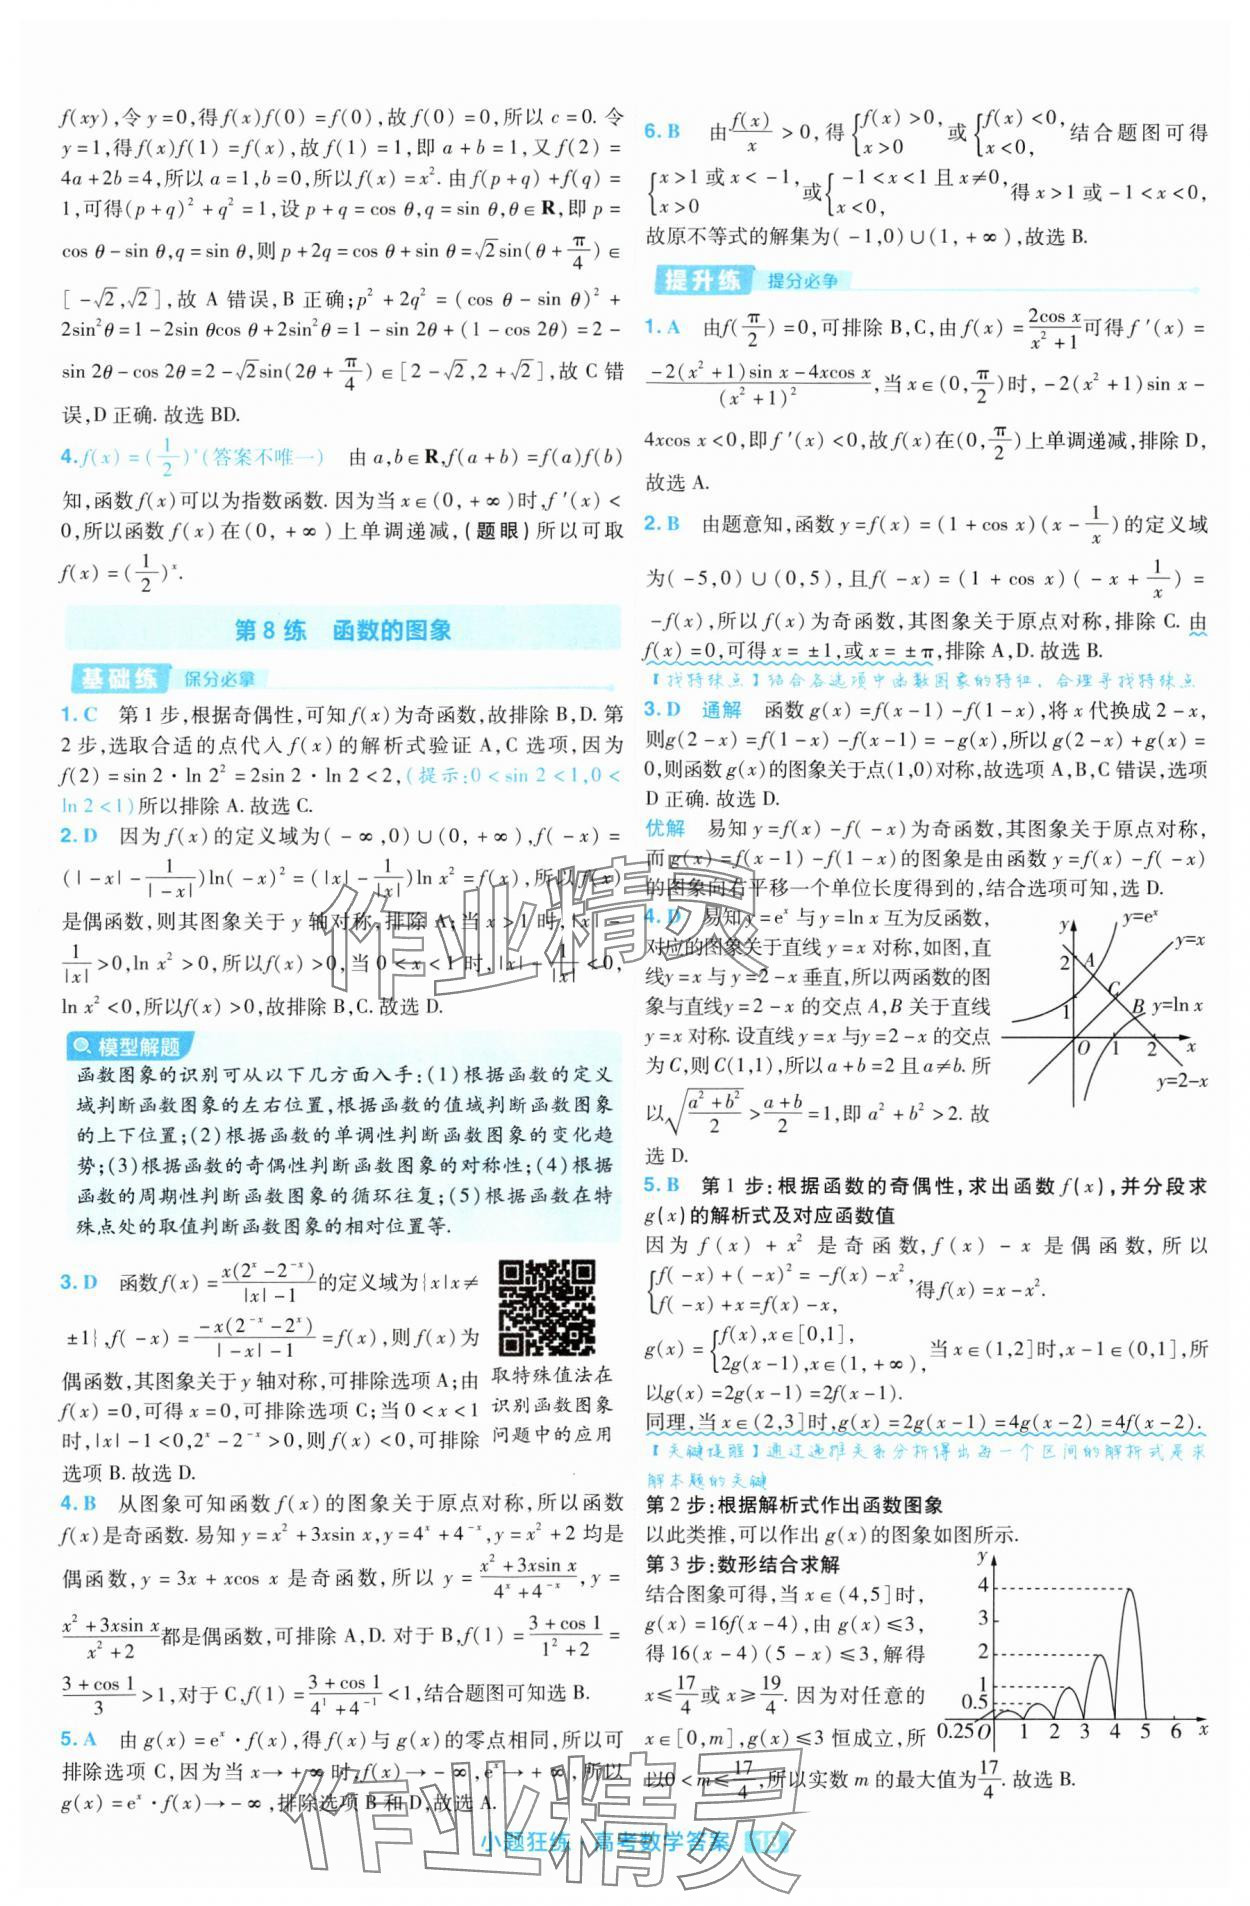 f(xy),令 y=0,得f(x)f(0)=f(0),故f(0)=0,所以 c=0. 令
y=1,得f(x)f(1)=f(x),故f(1)=1,即 a+b=1,又f(2)=
4a+2b=4,所以 a=1,b=0,所以f(x)=x². 由f(p+q)+f(q)=
1,可得(p+q)²+q²=1,设 p+q=cos θ,q=sin θ,θ∈R,即 p=
cos θ-sin θ,q=sin θ,则 p+2q=cos θ+sin θ=√2sin(θ+π/4)∈
[-√2,√2],故 A 错误,B 正确;p²+2q²=(cos θ-sin θ)²+
2sin²θ=1-2sin θcos θ+2sin²θ=1-sin 2θ+(1-cos 2θ)=2-
sin 2θ-cos 2θ=2-√2sin(2θ+π/4)∈[2-√2,2+√2],故 C 错
误,D 正确. 故选 BD.
4. f(x)=(1/2)ˣ(答案不唯一) 由 a,b∈R,f(a+b)=f(a)f(b)
知,函数f(x)可以为指数函数. 因为当 x∈(0,+∞)时,f′(x)<
0,所以函数 f(x)在(0,+∞)上单调递减,(题眼)所以可取
f(x)=(1/2)ˣ.
第 8 练 函数的图象
基础练 保分必拿
1. C 第 1 步,根据奇偶性,可知f(x)为奇函数,故排除 B,D. 第
2 步,选取合适的点代入 f(x)的解析式验证 A,C 选项,因为
f(2)=sin 2·ln 2²=2sin 2·ln 2<2,(提示:0<sin 2<1,0<
ln 2<1)所以排除 A. 故选 C.
2. D 因为f(x)的定义域为(-∞,0)∪(0,+∞),f(-x)=
(|-x|-1/|-x|)ln(-x)²=(|x|-1/|x|)ln x²=f(x),所以f(x)
是偶函数,则其图象关于 y 轴对称,排除 A;当 x>1 时,|x|-
1/|x|>0,ln x²>0,所以f(x)>0,当 0<x<1 时,|x|-1/|x|<0,
ln x²<0,所以f(x)>0,故排除 B,C. 故选 D.
模型解题
函数图象的识别可从以下几方面入手:(1)根据函数的定义
域判断函数图象的左右位置,根据函数的值域判断函数图象
的上下位置;(2)根据函数的单调性判断函数图象的变化趋
势;(3)根据函数的奇偶性判断函数图象的对称性;(4)根据
函数的周期性判断函数图象的循环往复;(5)根据函数在特
殊点处的取值判断函数图象的相对位置等.
3. D 函数f(x)=x(2ˣ-2⁻ˣ)/(|x|-1)的定义域为{x|x≠
±1},f(-x)=-x(2⁻ˣ-2ˣ)/(|-x|-1)=f(x),则f(x)为
偶函数,其图象关于y轴对称,可排除选项 A;由
f(x)=0,可得 x=0,可排除选项 C;当 0<x<1
时,|x|-1<0,2ˣ-2⁻ˣ>0,则f(x)<0,可排除
选项 B. 故选 D.
取特殊值法在
识别函数图象
问题中的应用
4. B 从图象可知函数 f(x)的图象关于原点对称,所以函数
f(x)是奇函数. 易知 y=x²+3xsin x,y=4ˣ+4⁻ˣ,y=x²+2 均是
偶函数,y=3x+xcos x 是奇函数,所以 y=(x²+3xsin x)/(4ˣ+4⁻ˣ),y=
(x²+3xsin x)/(x²+2)都是偶函数,可排除 A,D. 对于 B,f(1)=(3+cos 1)/(1²+2)=
(3+cos 1)/3>1,对于 C,f(1)=(3+cos 1)/(4¹+4⁻¹)<1,结合题图可知选 B.
5. A 由 g(x)=eˣ·f(x),得 f(x)与 g(x)的零点相同,所以可
排除选项 C,因为当 x→+∞时,f(x)→-∞,eˣ→+∞,所以
g(x)=eˣ·f(x)→-∞,排除选项 B 和 D,故选 A.
6. B 由f(x)/x>0,得{f(x)>0, x>0 或{f(x)<0, x<0, 结合题图可得
{x>1 或 x<-1, x>0 或{-1<x<1 且 x≠0, x<0, 得 x>1 或-1<x<0,
故原不等式的解集为(-1,0)∪(1,+∞),故选 B.
提升练 提分必争
1. A 由f(π/2)=0,可排除 B,C,由f(x)=2cos x/(x²+1)可得 f′(x)=
(-2(x²+1)sin x-4xcos x)/(x²+1)²,当 x∈(0,π/2)时,-2(x²+1)sin x-
4xcos x<0,即 f′(x)<0,故f(x)在(0,π/2)上单调递减,排除 D,
故选 A.
2. B 由题意知,函数 y=f(x)=(1+cos x)(x-1/x)的定义域
为(-5,0)∪(0,5),且f(-x)=(1+cos x)(-x+1/x)=
-f(x),所以f(x)为奇函数,其图象关于原点对称,排除 C. 由
f(x)=0,可得 x=±1,或 x=±π,排除 A,D. 故选 B.
【找特殊点】结合各选项中函数图象的特征,合理寻找特殊点
3. D 通解 函数 g(x)=f(x-1)-f(1-x),将 x 代换成 2-x,
则g(2-x)=f(1-x)-f(x-1)=-g(x),所以 g(2-x)+g(x)=
0,则函数 g(x)的图象关于点(1,0)对称,故选项 A,B,C 错误,选项
D 正确. 故选 D.
优解 易知 y=f(x)-f(-x)为奇函数,其图象关于原点对称,
而 g(x)=f(x-1)-f(1-x)的图象是由函数 y=f(x)-f(-x)
的图象向右平移一个单位长度得到的,结合选项可知,选 D.
4. D 易知y=eˣ 与 y=ln x 互为反函数,
对应的图象关于直线 y=x 对称,如图,直
线y=x 与 y=2-x 垂直,所以两函数的图
象与直线y=2-x 的交点 A,B 关于直线
y=x 对称. 设直线 y=x 与y=2-x 的交点
为 C,则 C(1,1),所以 a+b=2 且 a≠b. 所
以√((a²+b²)/2)>(a+b)/2=1,即 a²+b²>2. 故
选 D.
y y=eˣ
y=x
2 A
C
1 B y=ln x
O 1 2 x
y=2-x
5. B 第 1 步:根据函数的奇偶性,求出函数 f(x),并分段求
g(x)的解析式及对应函数值
因为 f(x)+x² 是奇函数,f(x)-x 是偶函数,所以
{f(-x)+(-x)²=-f(x)-x², f(-x)+x=f(x)-x, 得f(x)=x-x².
g(x)={f(x),x∈[0,1], 2g(x-1),x∈(1,+∞), 当 x∈(1,2]时,x-1∈(0,1],所
以g(x)=2g(x-1)=2f(x-1).
同理,当 x∈(2,3]时,g(x)=2g(x-1)=4g(x-2)=4f(x-2).
【关键提醒】通过递推关系分析得出每一个区间的解析式是求
解本题的关键
第 2 步:根据解析式作出函数图象
以此类推,可以作出 g(x)的图象如图所示.
第 3 步:数形结合求解
结合图象可得,当 x∈(4,5]时,
g(x)=16f(x-4),由 g(x)≤3,
得 16(x-4)(5-x)≤3,解得
x≤17/4或 x≥19/4. 因为对任意的
x∈[0,m],g(x)≤3 恒成立,所
以0<m≤17/4,所以实数 m 的最大值为17/4. 故选 B.
y
4
3
2
1
0.5
0.25 O 1 2 3 4 5 6 x
小题狂练·高考数学答案 13
作业精灵
作业精灵